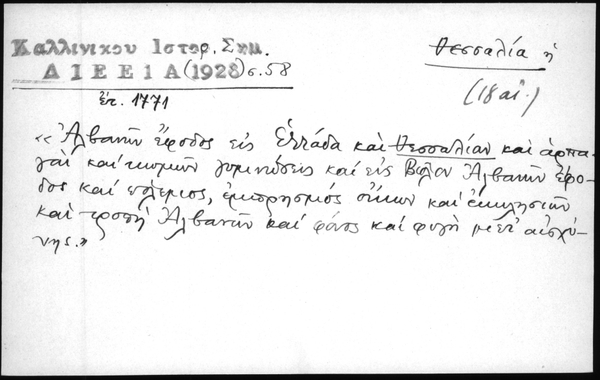 Καλλινίκου Ιστορ. Σημ.
ΔΙΕΕΙΑ (1928) σ. 58
Θεσσαλία ἡ
(18 αἰ.)
ἐτ. 1771
«Ἀλβανῶν ἔφοδος εἰς Ἑλλάδα καὶ Θεσσαλίαν καὶ ἁρπα-
γαὶ καὶ γυμνώσεις καὶ εἰς Βῶλον Ἀλβανῶν ἔφο-
δος καὶ πόλεμος, ἐμπρησμὸς οἴκων καὶ ἐκκλησιῶν
καὶ τροπὴ Ἀλβανῶν καὶ φόνος καὶ φυγὴ μετ' αἰσχύ-
νης.»